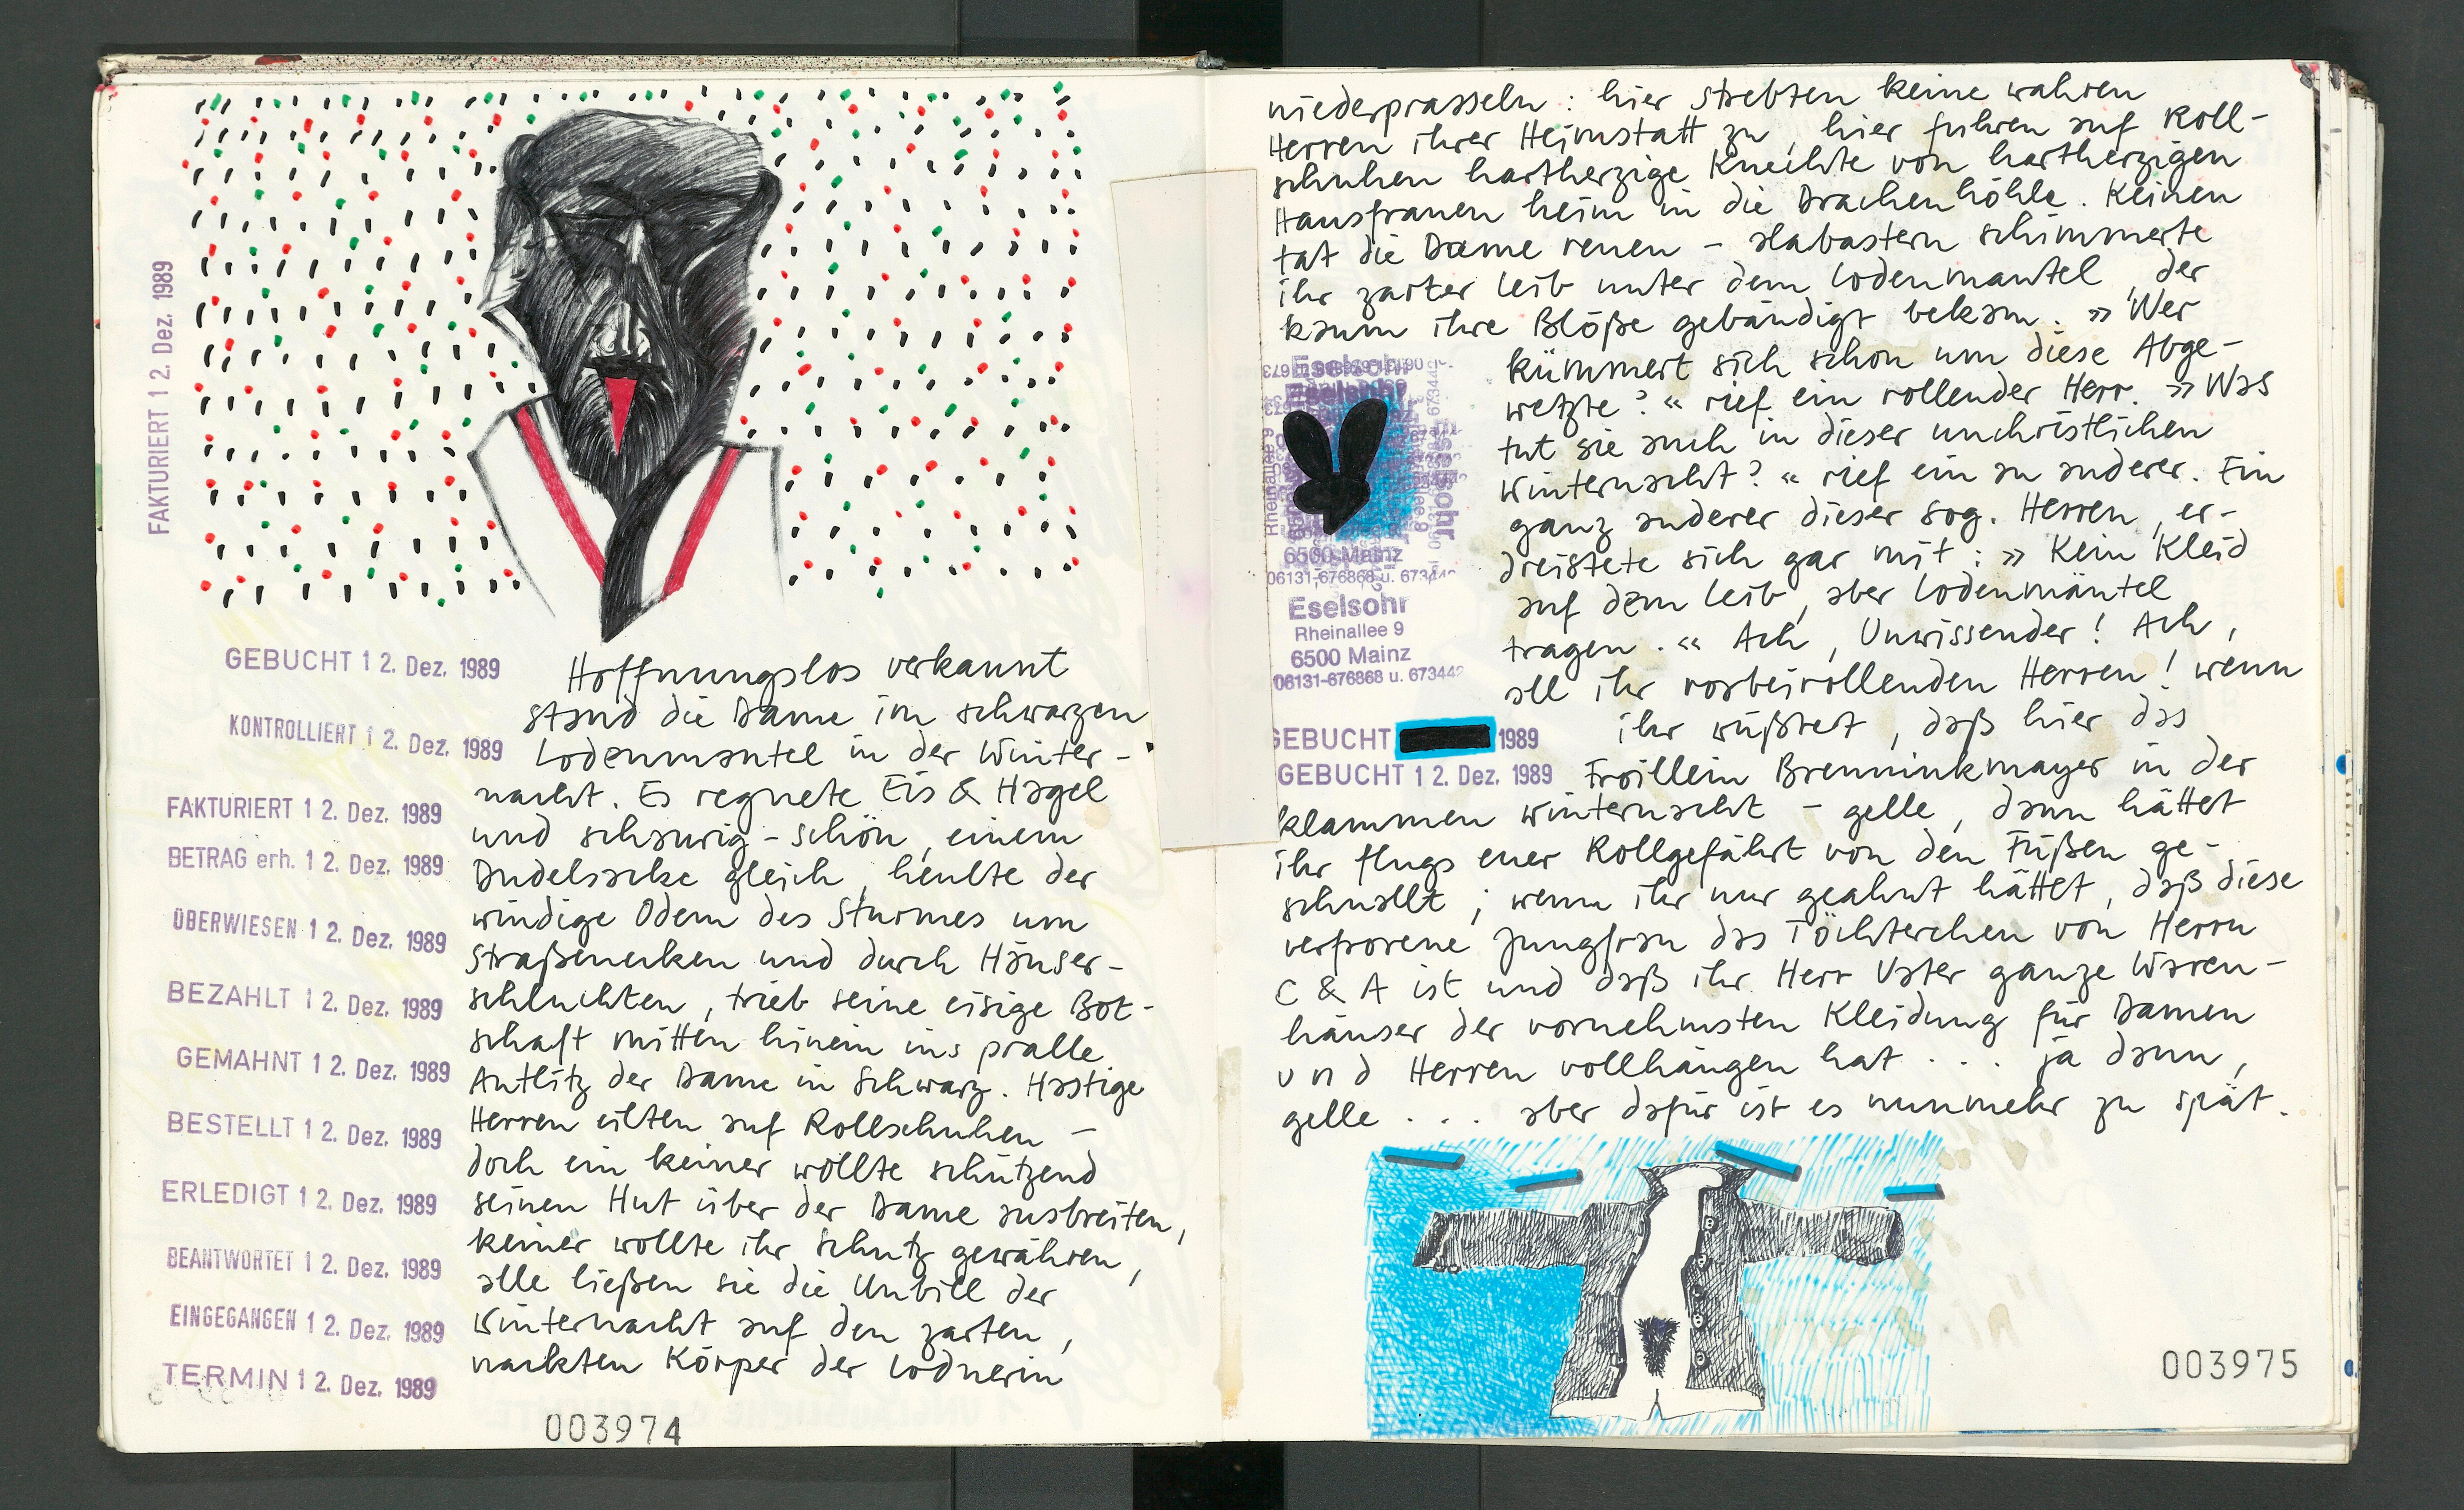 FAKTURIERT 1 2. Dez. 1989
GEBUCHT 1 2. Dez. 1989
KONTROLLIERT 1 2. Dez. 1989
FAKTURIERT 1 2. Dez. 1989
BETRAG erh. 1 2. Dez. 1989
ÜBERWIESEN 1 2. Dez. 1989
BEZAHLT 1 2. Dez. 1989
GEMAHNT 1 2. Dez. 1989
BESTELLT 1 2. Dez. 1989
ERLEDIGT 1 2. Dez. 1989
BEANTWORTET 1 2. Dez. 1989
EINGEGANGEN 1 2. Dez. 1989
TERMIN 1 2. Dez. 1989
Hoffnungslos verkannt
stand die Dame im schwarzen
Lodenmantel in der Winter-
nacht. Es regnete Eis & Hagel
und schaurig-schön, einem
Dudelsacke gleich, heulte der
windige Odem des Sturmes um
Straßenecken und durch Häuser-
schluchten, trieb seine eisige Bot-
schaft mitten hinein ins pralle
Antlitz der Dame in Schwarz. Hastige
Herren eilten auf Rollschuhen -
doch ein keiner wollte schützend
seinen Hut über der Dame ausbreiten,
keiner wollte ihr Schutz gewähren,
alle ließen sie die Unbill der
Winternacht auf den zarten,
nackten Körper der Lodnerin
003974
niederprasseln: hier strebten keine wahren
Herren ihrer Heimstatt zu, hier fuhren auf Roll-
schuhen hartherzige Knechte von hartherzigen
Hausfrauen heim in die Drachenhöhle. Keinen
tat die Dame reuen - alabastern schimmerte
ihr zarter Leib unter dem Lodenmantel, der
kaum ihre Blöße gebändigt bekam. » Wer
kümmert sich schon um diese Abge-
wetzte? « rief ein rollender Herr. » Was
tut sie auch in dieser unchristlichen
Winternacht? « rief ein an anderer. Ein
ganz anderer dieser sog. Herren, er-
dreistete sich gar mit: » Kein Kleid
auf dem Leib, aber Lodenmäntel
tragen. « Ach, Unwissender! Ach,
all ihr vorbeirollenden Herren! wenn
ihr wüßtet, daß hier das
Froillein Brenninkmayer in der
klammen Winternacht - gelle, dann hättet
ihr flugs euer Rollgefährt von den Füßen ge-
schnallt; wenn ihr nur geahnt hättet, daß diese
verfrorene Jungfrau das Töchterchen von Herrn
C & A ist und daß ihr Herr Vater ganze Waren-
häuser der vornehmsten Kleidung für Damen
und Herren vollhängen hat . . . ja dann,
gelle . . . aber dafür ist es nunmehr zu spät.
Eselsohr
Eselsohr
6500 Mainz
06131-676868 u. 67344
Eselsohr
Rheinallee 9
6500 Mainz
06131-676868 u. 673442
GEBUCHT 1989
GEBUCHT 1 2. Dez. 1989
003975